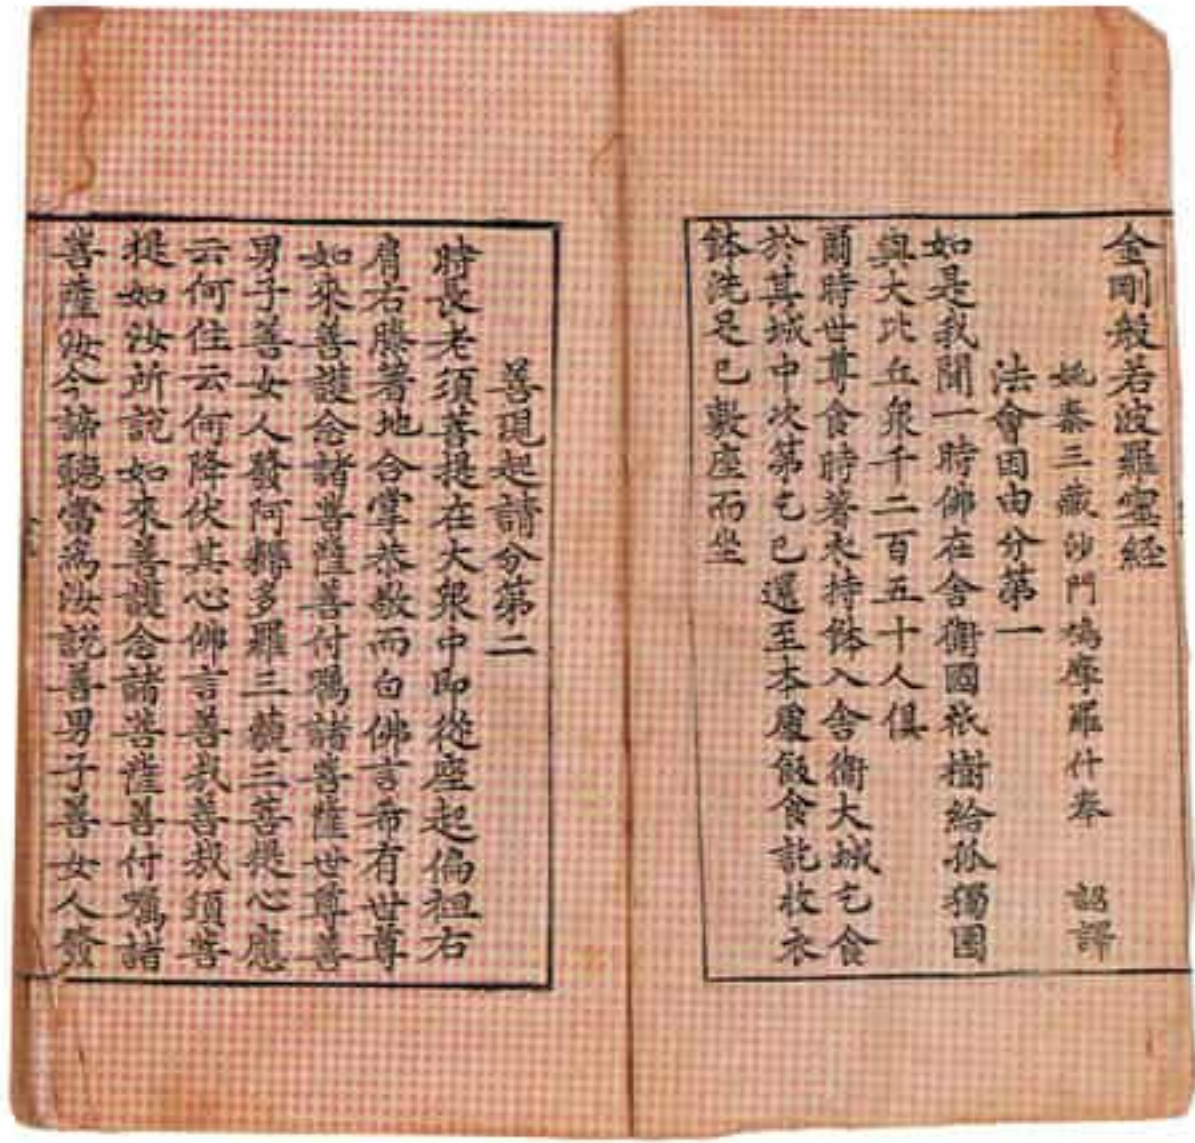 金剛般若波羅蜜經
姚秦三藏沙門鳩摩羅什奉 詔譯
法會因由分第一
如是我聞一時佛在舍衛國祇樹給孤獨園
與大比丘衆千二百五十人俱
爾時世尊食時著衣持鉢入舍衛大城乞食
於其城中次第乞已還至本處飯食訖收衣
鉢洗足已敷座而坐
善現起請分第二
時長老須菩提在大衆中即從座起偏袒右
肩右膝著地合掌恭敬而白佛言希有世尊
如來善護念諸菩薩善付囑諸菩薩世尊善
男子善女人發阿耨多羅三藐三菩提心應
云何住云何降伏其心佛言善哉善哉須菩
提如汝所說如來善護念諸菩薩善付囑諸
菩薩汝今諦聽當為汝說善男子善女人發